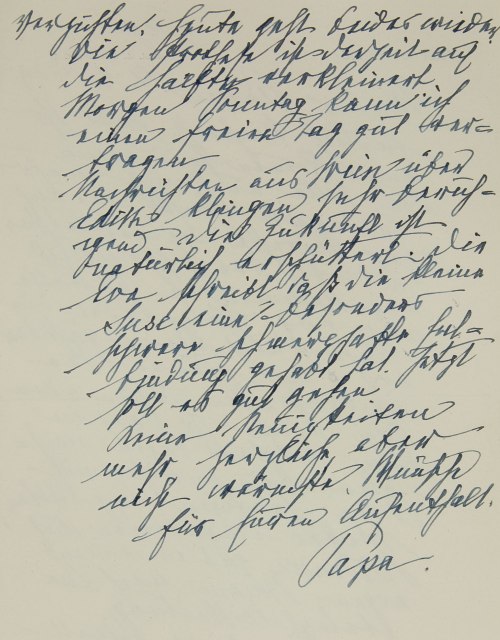 verzichten. Heute geht beides wieder.
Die Prothese ist derzeit auf
die Hälfte verkleinert.
Morgen Sonntag kann ich
einen freien Tag gut ver-
tragen
Nachrichten aus Wien über
Edith klingen sehr beruh-
igend die Zukunft ist
natürlich erschüttert. Die
schreibt daß die kleine
Suse eine besonders
schwere schmerzhafte Ent-
bindung gehabt hat. Jetzt
soll es gut gehen
Keine Neuigkeiten
mehr herzliche aber
nicht wärmste Wünsche
für Euren Aufenthalt.
Papa.